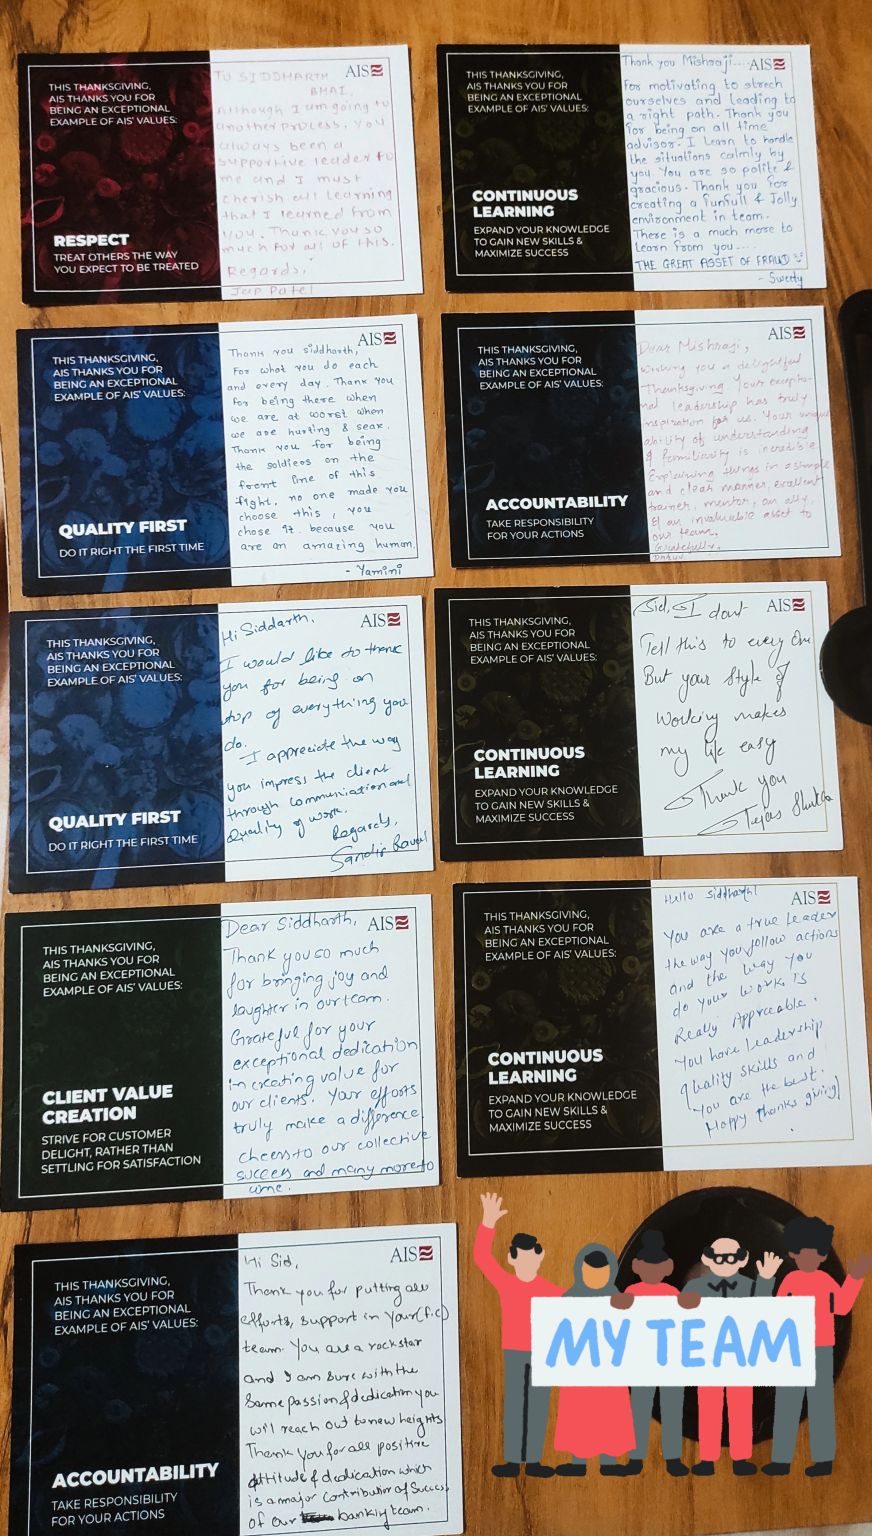 THIS THANKSGIVING,
AIS THANKS YOU FOR
BEING AN EXCEPTIONAL
EXAMPLE OF AIS' VALUES:
RESPECT
TREAT OTHERS THE WAY
YOU EXPECT TO BE TREATED
AIS
TO SIDDHARTH
BHAI,
Although I am going to
another process, you
always been a
supportive leader to
me and I must
cherish all learning
that I learned from
you. Thank you so
much for all of this.
Regards,
Jap Patel
THIS THANKSGIVING,
AIS THANKS YOU FOR
BEING AN EXCEPTIONAL
EXAMPLE OF AIS' VALUES:
CONTINUOUS
LEARNING
EXPAND YOUR KNOWLEDGE
TO GAIN NEW SKILLS &
MAXIMIZE SUCCESS
AIS
Thank you Mishraji....
For motivating to strech
ourselves and leading to
a right path. Thank you
for being on all time
advisor. I Learn to handle
the situations calmly by
you. You are so polite &
gracious. Thank you for
creating a funfull & Jolly
environment in team.
There is a much more to
Learn from you....
THE GREAT ASSET OF FRAUD
- Sweety
THIS THANKSGIVING,
AIS THANKS YOU FOR
BEING AN EXCEPTIONAL
EXAMPLE OF AIS' VALUES:
QUALITY FIRST
DO IT RIGHT THE FIRST TIME
AIS
Thank you siddharth,
For what you do each
and every day. Thank you
for being there when
we are at worst when
we are hurting & sear.
Thank you for being
the soldiers on the
front line of this
fight, no one made you
choose this, you
chose it because you
are an amazing human.
- Yamini
THIS THANKSGIVING,
AIS THANKS YOU FOR
BEING AN EXCEPTIONAL
EXAMPLE OF AIS' VALUES:
ACCOUNTABILITY
TAKE RESPONSIBILITY
FOR YOUR ACTIONS
AIS
Dear Mishraji,
wishing you a delightful
Thanksgiving Your exceptio-
nal leadership has truly
inspiration for us. Your unique
ability of understanding
& familiarity is incredible
Explaining things in a simple
and clear manner, excellent
trainer, mentor, an ally,
& an invaluable asset to
our team,
Gratefully,
Dhruv
THIS THANKSGIVING,
AIS THANKS YOU FOR
BEING AN EXCEPTIONAL
EXAMPLE OF AIS' VALUES:
QUALITY FIRST
DO IT RIGHT THE FIRST TIME
AIS
Hi Siddarth,
I would like to thank
you for being on
top of everything you
do.
I appreciate the way
you impress the client
through communication and
Quality of work.
Regards,
Sandip Raval
THIS THANKSGIVING,
AIS THANKS YOU FOR
BEING AN EXCEPTIONAL
EXAMPLE OF AIS' VALUES:
CONTINUOUS
LEARNING
EXPAND YOUR KNOWLEDGE
TO GAIN NEW SKILLS &
MAXIMIZE SUCCESS
AIS
Sid, I dont
Tell this to every One
But your Style of
Working makes
my life easy
Thank you
Tejas Shukla
THIS THANKSGIVING,
AIS THANKS YOU FOR
BEING AN EXCEPTIONAL
EXAMPLE OF AIS' VALUES:
CLIENT VALUE
CREATION
STRIVE FOR CUSTOMER
DELIGHT, RATHER THAN
SETTLING FOR SATISFACTION
AIS
Dear Siddharth,
Thank you so much
for bringing joy and
laughter in our team.
Grateful for your
exceptional dedication
in creating value for
our clients. Your efforts
truly make a difference
cheers to our collective
success and many more to
come.
THIS THANKSGIVING,
AIS THANKS YOU FOR
BEING AN EXCEPTIONAL
EXAMPLE OF AIS' VALUES:
CONTINUOUS
LEARNING
EXPAND YOUR KNOWLEDGE
TO GAIN NEW SKILLS &
MAXIMIZE SUCCESS
AIS
Hello Siddharth!
You are a true Leader
the way you follow actions
and the way you
do your work is
Really Appreable.
You have leadership
quality skills and
You are the best.
Happy thanks giving!
THIS THANKSGIVING,
AIS THANKS YOU FOR
BEING AN EXCEPTIONAL
EXAMPLE OF AIS' VALUES:
ACCOUNTABILITY
TAKE RESPONSIBILITY
FOR YOUR ACTIONS
AIS
Hi Sid,
Thank you for putting all
efforts, support in your (F.C)
team. You are a rockstar
and I am sure with the
Same passion & dedication you
will reach out to new heights
Thank you for all positive
attitude & dedication which
is a major Contributor of Success
of our banking team.
MY TEAM